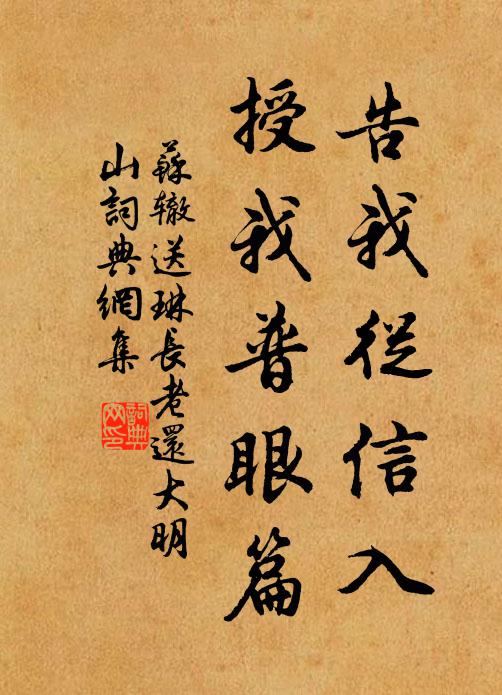 告我從信入
授我普眼篇
蘇轍送琳長老還大明
山詞典網集
詞典
网印